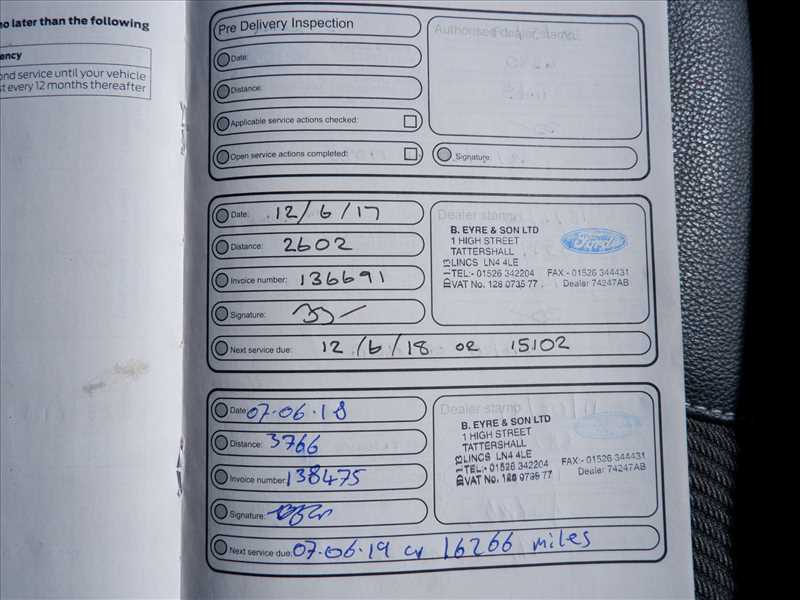 no later than the following
ency
ond service until your vehicle
st every 12 months thereafter
Pre Delivery Inspection
Authorised dealer stamp
Date:
Distance:
Applicable service actions checked:
Open service actions completed:
Signature:
Date: 12/6/17
Distance: 2602
Invoice number: 136691
Signature:
Next service due: 12/6/18 or 15102
Dealer stamp
B. EYRE & SON LTD
1 HIGH STREET
TATTERSHALL
LINCS LN4 4LE
TEL:- 01526 342204 FAX:- 01526 344431
VAT No. 128 0735 77 Dealer 74247AB
Ford
Date: 07.06.18
Distance: 3766
Invoice number: 138475
Signature:
Next service due: 07.06.19 or 16266 miles
Dealer stamp
B. EYRE & SON LTD
1 HIGH STREET
TATTERSHALL
LINCS LN4 4LE
TEL:- 01526 342204 FAX:- 01526 344431
VAT No. 128 0735 77 Dealer 74247AB